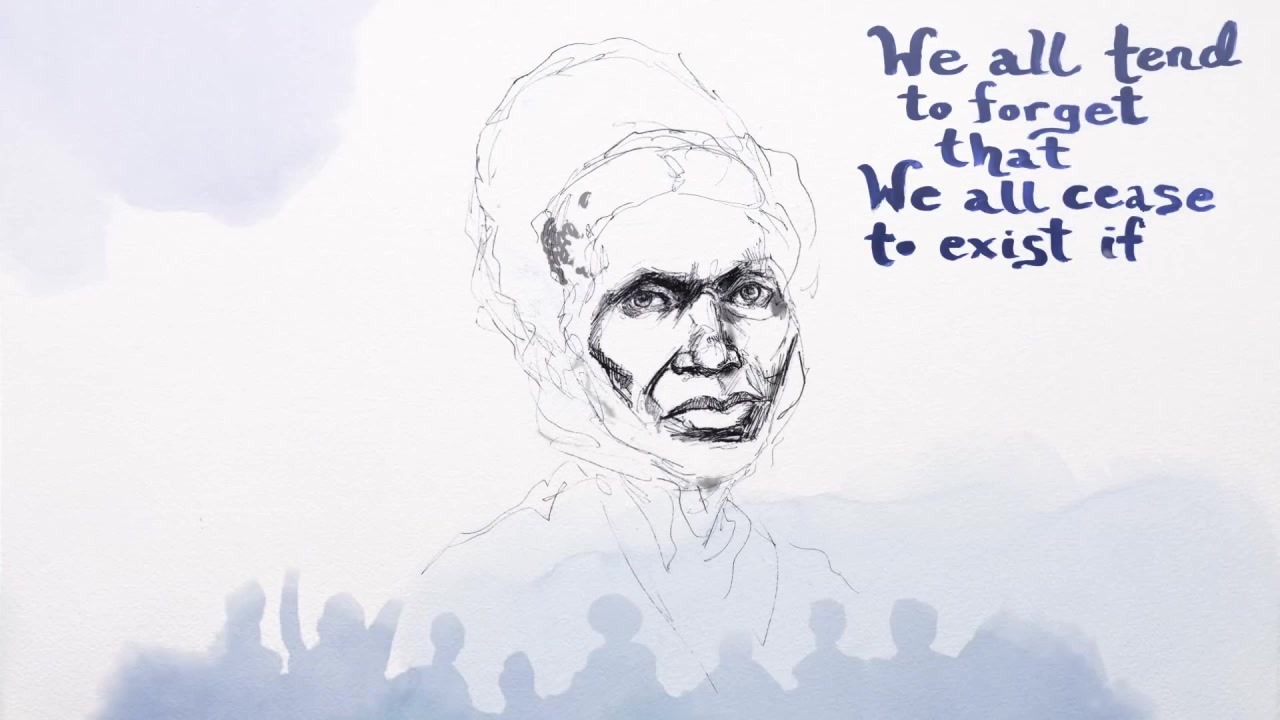 We all tend
to forget
that
We all cease
to exist if